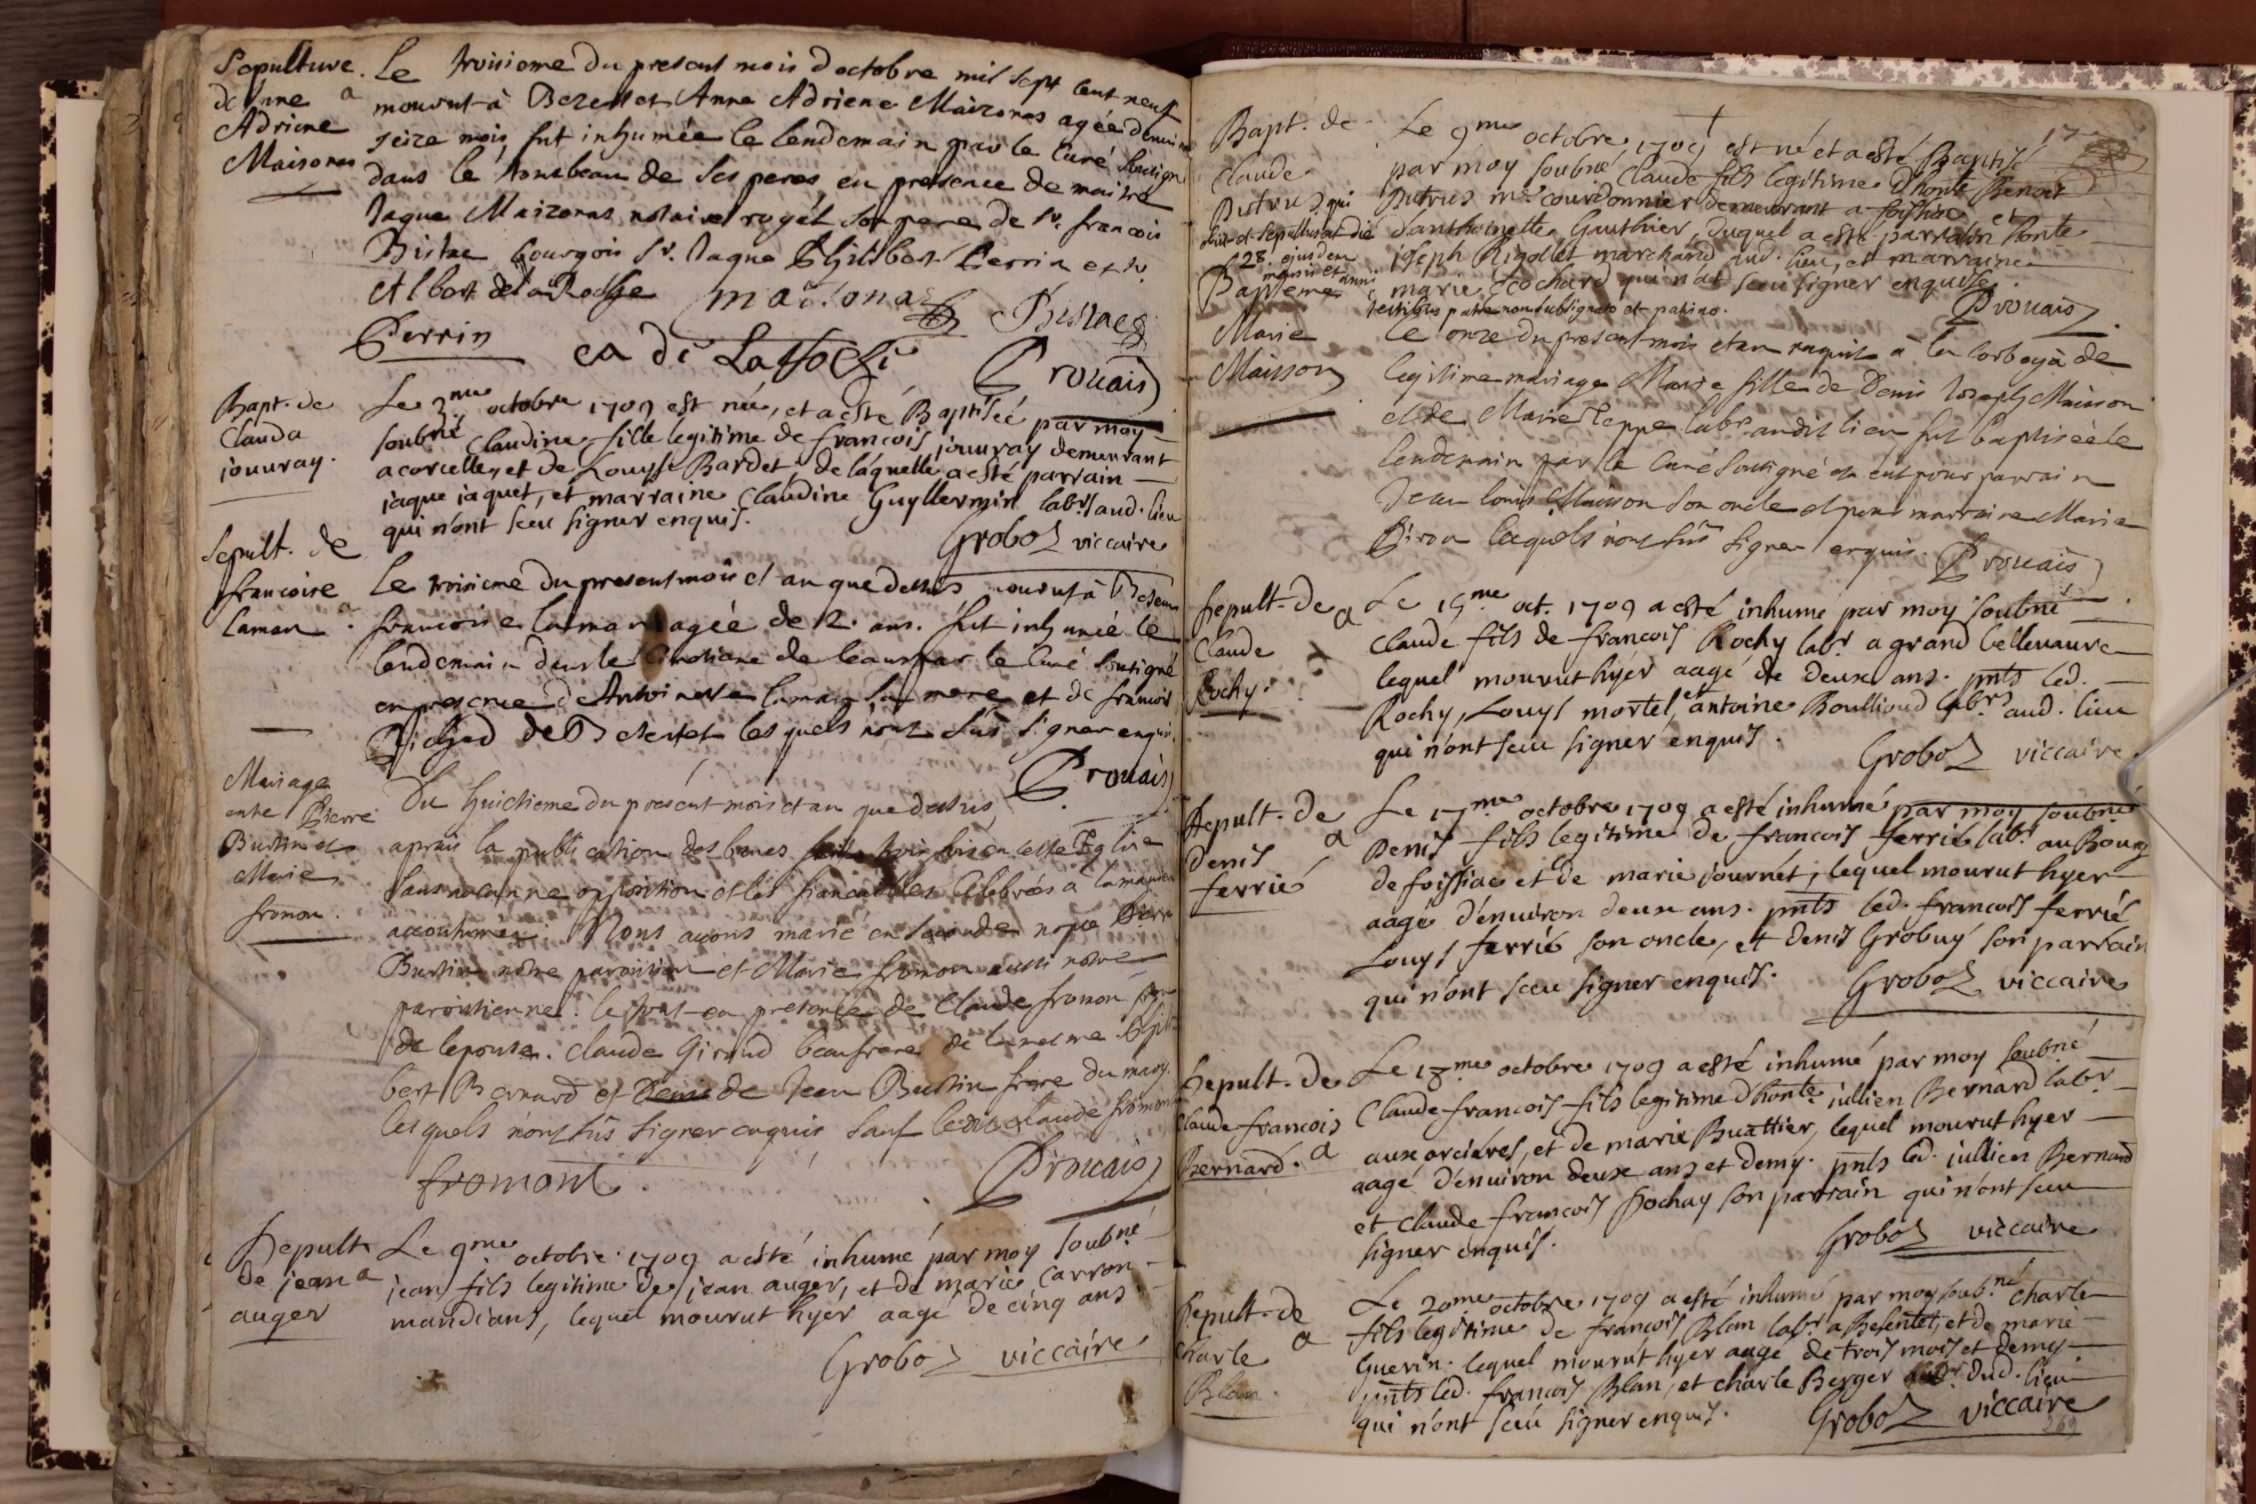 Sepulture
d'Anne
Adriene
Maizonas
Le troisieme du present mois d'octobre mil sept cent neuf
mourut à Bezentet Anne Adriene Maizonas agée d'environ
seize mois, fut inhumée le lendemain par le Curé soussigné
dans le tombeau de ses peres en presence de maitre
Jaque Maizonas notaire royal son pere de Sr. francois
Bistac bourgois Sr. Jaque Philibert Perrin et Sr.
Albert de la Roche
Maizonas
Bistac
Perrin
Prouais
Bapt. de
Clauda
jouuray.
Le 3.me octobre 1709 est née, et a esté Baptisée par moy
soubné Claudine fille legitime de francois jouuray demeurant
a corcelles, et de Louyse Bardet de laquelle a esté parrain
jaque jaquet, et marraine Claudine Guyllermin labrs aud. lieu
qui n'ont sceu signer enquis.
Groboz viccaire
Sepult. de
francoise
laman
Le troisieme du present mois et an que dessus mourut à
francoise laman agée de 12. ans. fut inhumée le
lendemain dans le Cimetiere de ceans par le Curé soussigné
en presence d'Antoinette laman sa mere et de francois
lesquels n'ont sus signer enquis.
Prouais
Mariage
entre Pierre
Burtin et
Marie
fromon.
Du huictieme du present mois et an que dessus,
apres la publication des bancs faite trois fois en cette Eglise
sans aucunne opposition et les fiancailles celebrées à la maniere
accoutumée. Nous avons marié en seconde nopce Pierre
Burtin notre paroissien et Marie fromon aussi notre
paroissienne: le tout en presence de Claude fromon
de l'epouse. Claude Giroud beaufrere de la mesme
bert Bernard et de Jean Burtin frere du mary.
lesquels n'ont sus signer enquis, sauf Claude fromon
fromont
Prouais
Sepult.
de jean
auger
Le 9me octobre 1709 a esté inhumé par moy soubné
jean fils legitime de jean auger, et de marie Carron
mandians, lequel mourut hyer aagé de cinq ans
Groboz viccaire
17
Bapt. de
Claude
Putrus, qui
obiit et sepultus est die
28. ejusdem
mensis et anni
Le 9me octobre 1709 est né et a esté Baptisé
par moy soubné Claude fils legitime d'honte Benoit
Putrus me. courdonnier demeurant a foissiac, et
d'anthoinette Gauthier, duquel a esté parrain honte
joseph Rigollet marchand aud. lieu, et marraine
marie Cochard qui n'at sceu signer enquise.
testibus patre non subsignato et patrino.
Prouais
Bapteme
Marie
Maisson
Le onze du present mois et an naquit à la corbeya de
legitime mariage Marie fille de Denis Joseph Maisson
et de Marie Teppe labrs audit lieu fut baptisée le
lendemain par le Curé soussigné et eut pour parrain
Jean louis Maisson son oncle et pour marraine Marie
Piron lesquels n'ont sus signer enquis.
Prouais
Sepult. de
Claude
Rochy.
Le 15me oct. 1709 a esté inhumé par moy soubné
Claude fils de francois Rochy labr a grand bellevaure
lequel mourut hyer aagé de deux ans. pnts led.
Rochy, Louys mortel, et antoine Boullioud labrs aud. lieu
qui n'ont sceu signer enquis.
Groboz viccaire
Sepult. de
Denis
ferrié
Le 17me octobre 1709 a esté inhumé par moy soubné
Denis fils legitime de francois ferrié labr au Bourg
de foissiac et de marie journet, lequel mourut hyer
aagé d'environ deux ans. pnts led. francois ferrié
Louys ferrié son oncle, et denis Grobuy son parrain
qui n'ont sceu signer enquis.
Groboz viccaire
Sepult. de
Claude francois
Bernard.
Le 18me octobre 1709 a esté inhumé par moy soubné
Claude francois fils legitime d'honte jullien Bernard labr
aux orcieres, et de marie Buattier, lequel mourut hyer
aagé d'enuiron deux ans et demy. pnts led. jullien Bernard
et Claude francois son parrain qui n'ont sceu
signer enquis.
Groboz viccaire
Sepult. de
Charle
Blan.
Le 20me octobre 1709 a esté inhumé par moy soub.né charle
fils legitime de francois Blan labr a Besentet, et de marie
Guerin. lequel mourut hyer aagé de trois mois et demy
pnts led. francois Blan, et charle Berger dud. lieu
qui n'ont sceu signer enquis.
Groboz viccaire
369